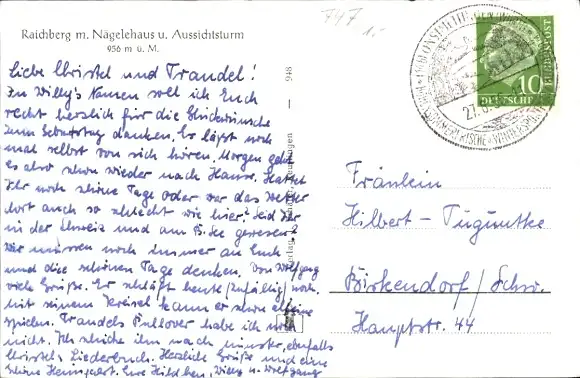 Raichberg m. Nägelehaus u. Aussichtsturm
956 m ü. M.
Liebe Christel und Traudel!
Zu Willy's Namen soll ich Euch
recht herzlich für die Glückwünsche
zum Geburtstag danken. Er läßt noch
mal selbst von sich hören. Morgen geht
es aber schon wieder nach Hause. Hattet
Ihr noch schöne Tage oder war das Wetter
dort auch so schlecht wie hier? Seid Ihr
in der Schweiz und am B.See gewesen?
Wir müssen noch immer an Euch
und die schönen Tage denken. Von Wolfgang
viele Grüße. Er schläft heute (zufällig) noch.
Mit seinem Kreisel kann er schon alleine
spielen. Traudels Pullover habe ich noch
nicht. Ich schicke ihn nach , ebenfalls
Christels Liederbuch. Herzliche Grüße und eine
schöne Eure Hildchen, Willy u. Wolfgang
948
747
1,-
DEUTSCHE BUNDESPOST
10
27.
Fräulein
Hilbert -
Birkendorf/Schw.
Hauptstr. 44